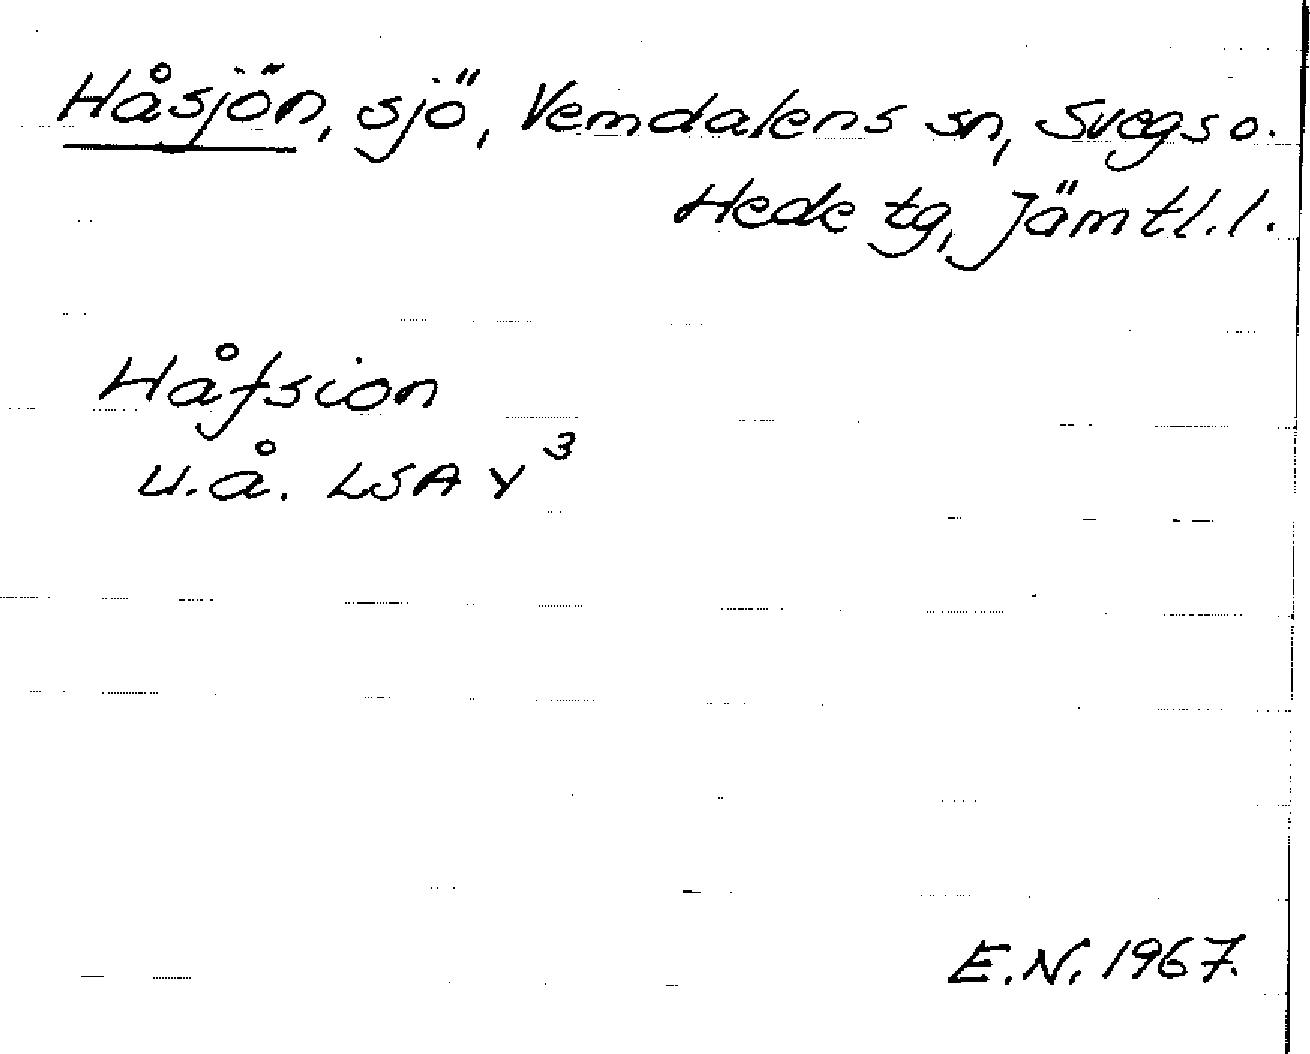 Håsjön, sjö, Vemdalens sn, Svegs o.
Hede tg, Jämtl. l.
Håfsion
u.å. LSA Y³
E.N. 1967.